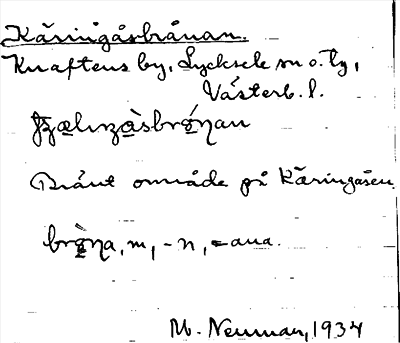 Käringåsbrånan.
Knaftens by, Lycksele sn o. tg,
Västerb. l.
Bränt område på Käringåsen
brǫ̀na, m, -n, =ana.
M. Neuman, 1934